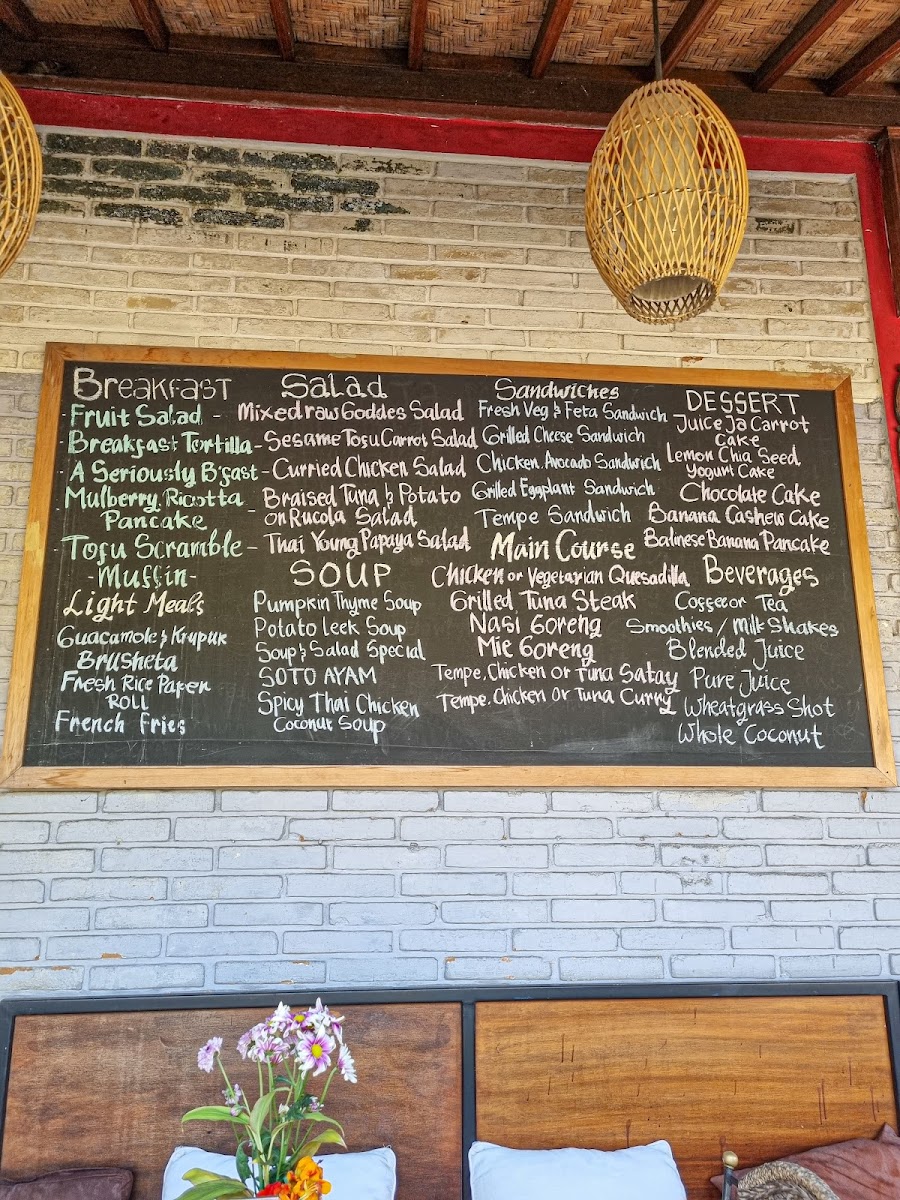 Breakfast
- Fruit Salad -
- Breakfast Tortilla -
- A Seriously B'fast -
Mulberry, Ricotta
Pancake
- Tofu Scramble -
- Muffin -
Light Meals
Guacamole & Krupuk
Brusheta
Fresh Rice Paper
ROLL
French Fries
Salad
Mixed raw Goddes Salad
Sesame Tofu Carrot Salad
Curried Chicken Salad
Braised Tuna & Potato
on Rucola Salad
Thai Young Papaya Salad
SOUP
Pumpkin Thyme Soup
Potato Leek Soup
Soup & Salad Special
SOTO AYAM
Spicy Thai Chicken
Coconut Soup
Sandwiches
Fresh Veg & Feta Sandwich
Grilled Cheese Sandwich
Chicken, Avocado Sandwich
Grilled Eggplant Sandwich
Tempe Sandwich
Main Course
Chicken or Vegetarian Quesadilla
Grilled Tuna Steak
Nasi Goreng
Mie Goreng
Tempe, Chicken Or Tuna Satay
Tempe, Chicken Or Tuna Curry
DESSERT
Juice Ja Carrot
Cake
Lemon Chia Seed
Yogurt Cake
Chocolate Cake
Banana Cashew Cake
Balinese Banana Pancake
Beverages
Coffee or Tea
Smoothies / Milk Shakes
Blended Juice
Pure Juice
Wheatgrass Shot
Whole Coconut